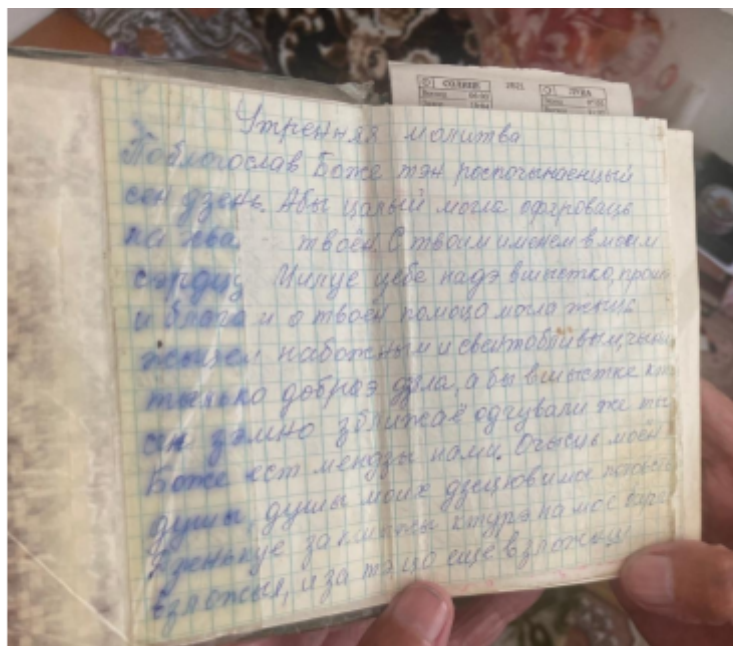 СОЛНЦЕ 2021 ЛУНА
Утренняя молитва
Поблогослав Боже тэн роспочынаенцый
сен дзень. Абы цалый могла офяроваць
на хва твоен. С твоим именем в моим
сэрцу Милуе цебе надэ вшыстко, прош
и блага и о твоен помоцо могла жыць
жыцем набожным и свентобливым, чыни
тылько добрэ дзела, а бы вшыстке кту
сен зэмно зближаё одчували же ты
Боже ест мендзы нами. Очысць моён
душы, душы моих дзецюв и
Дзенькуе за ктурэ на мое барк
взложыл, и за то цо еще взложыш